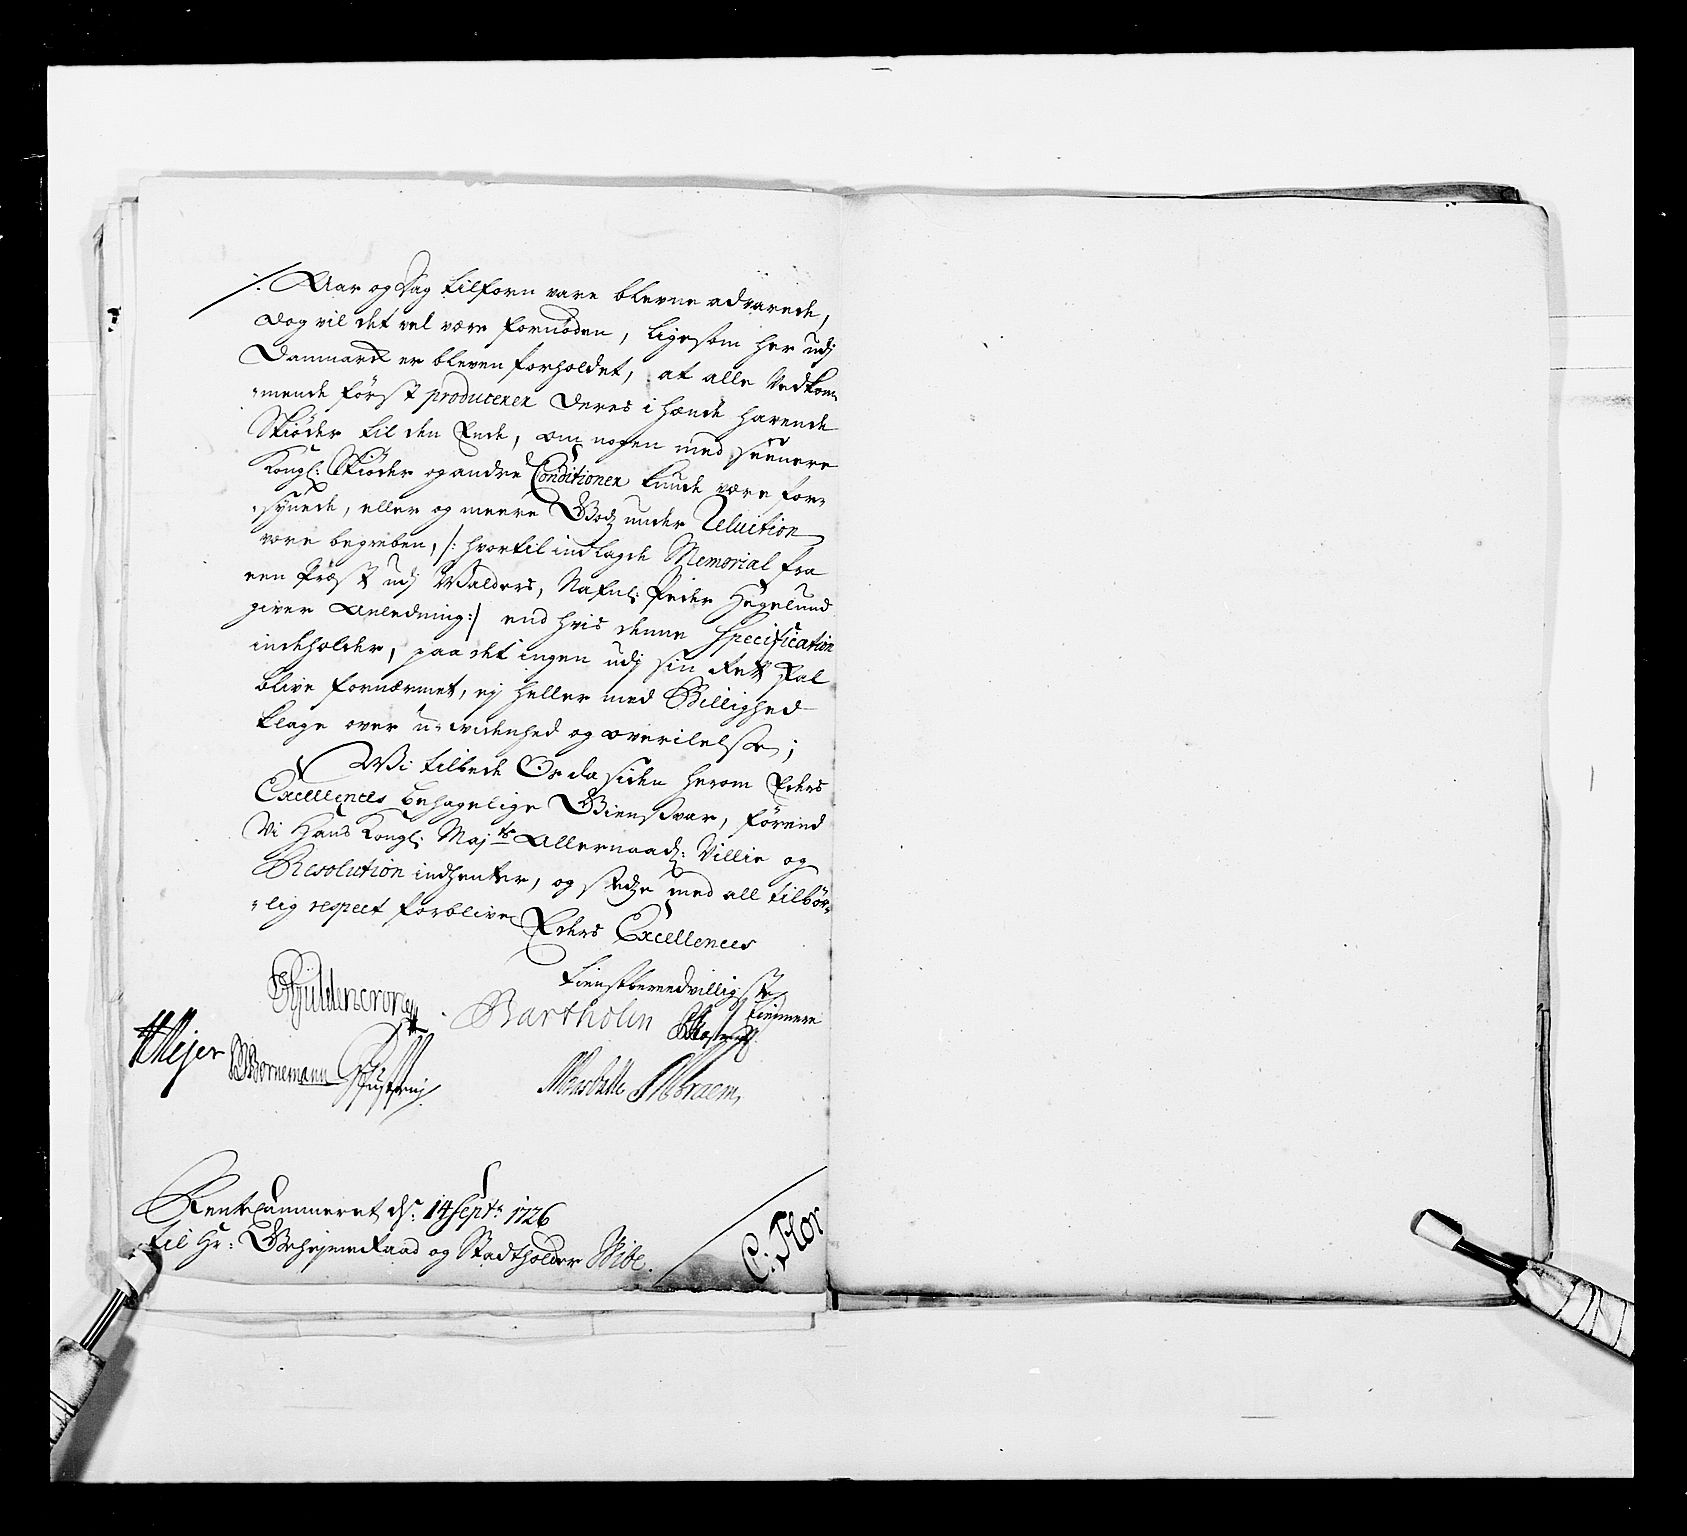 /. Aar og Dag tilforn vare blevne advarede,
dog vil det vel være fornöden, ligesom her udj
Danmarck er bleven forholdet, at alle Vedkom-
mende först producerer deres i hænde havende
Skiöder til den Ende, om nogen med seenere
Kongl: Skiöder og andre Conditioner kunde være for-
synede, eller og meere Godz under Reluition
være begreben, /: hvortil indlagde Memorial fra
een Præst udj Walders, Nafnl: Peder Högelund
giver Anledning :/ end hvis denne Specification
indeholder, paa det ingen udj sin Rett skal
blive fornærmet, ej heller med Billighed
klage over u-widenhed og overilelse;
Wi tilbede Os da siden herom Eders
Excellences behagelige Giensvar, förend
Vi Hans Kongl: Maj:ts Allernaad: Villie og
Resolution indhenter, og stedze med all tilbör-
lig respect forblive Eders Excellences
tienstberedvilligste
tienere
Gyldencrone
Bartholin
HMejer
Bornemann
Rentecammeret d: 14 Sept: 1726
til Hr: Geheimeraad og Stadtholder Wibe.
C: Flor